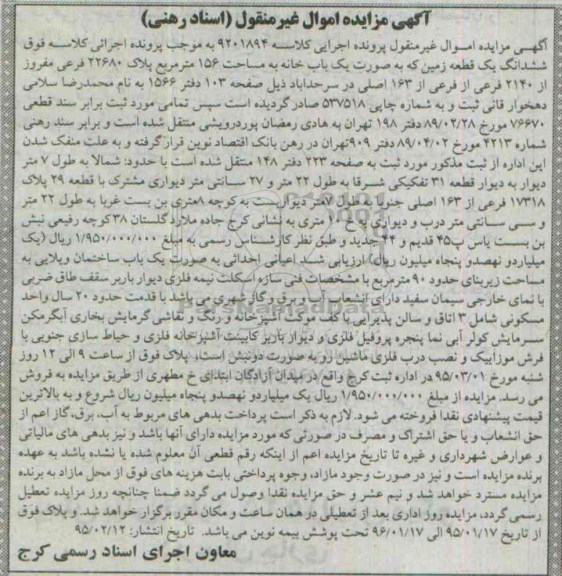 آگهی مزایده اموال غیرمنقول (اسناد رهنی)
آگهـی مزایده امـوال غیرمنقول پرونده اجرایی کلاسـه ۹۲۰۱۸۹۴ به موجب پرونده اجرائی کلاسـه فوق
ششدانگ یک قطعه زمین که به صورت یک باب خانه به مساحت ۱۵۶ مترمربع پلاک ۲۲۶۸۰ فرعی مفروز
از ۲۱۴۰ فرعی از فرعی از ۱۶۳ اصلی در سرحدآباد ذیل صفحه ۱۰۳ دفتر ۱۵۶۶ به نام محمدرضا سلامی
دهخوار قانی ثبت و به شماره چاپی ۵۳۷۵۱۸ صادر گردیده است سپس تمامی مورد ثبت برابر سند قطعی
۷۶۶۷۰ مورخ ۸۹/۰۲/۲۸ دفتر ۱۹۸ تهران به هادی رمضان پوردرویشی منتقل شده است و برابر سند رهنی
شماره ۴۲۱۳ مورخ ۸۹/۰۴/۰۲ دفتر ۹۰۹تهران در رهن بانک اقتصاد نوین قرار گرفته و به علت منفک شدن
این اداره از ثبت مذکور مورد ثبت به صفحه ۲۲۳ دفتر ۱۴۸ منتقل شده است با حدود: شمالا به طول ۷ متر
دیوار به دیوار قطعه ۳۱ تفکیکی شـرقا به طول ۲۲ متر و ۲۷ سـانتی متر دیواری مشترک با قطعه ۲۹ پلاک
۱۷۳۱۸ فرعی از ۱۶۳ اصلی جنوبا به طول ۷متر دیواریست به کوچه ۸متری بن بست غربا به طول ۲۲ متر
و سـی سـانتی متر درب و دیواری به خ ۱۰ متری به نشانی کرج جاده ملارد گلستان ۳۸ کوچه رفیعی نبش
بن بسـت یاس پ۴۵ قدیم و ۴۴ جدید و طبق نظر کارشـناس رسمی به مبلغ ۱/۹۵۰/۰۰۰/۰۰۰ ریال (یک
میلیاردو نهصدو پنجاه میلیون ریال) ارزیابی شـد اعیانی احداثی به صورت یک باب ساختمان ویلایی به
مساحت زیربنای حدود ۹۰ مترمربع با مشخصات فنی سازه اسکلت نیمه فلزی دیوار باربر سقف طاق ضربی
با نمای خارجی سیمان سفید دارای انشعاب آب و برق و گاز شهری می باشد با قدمت حدود ۲۰ سال واحد
مسکونی شامل ۳ اتاق و سالن پذیرایی با کف موزاییک آشپزخانه و رنگ و نقاشی گرمایش بخاری آبگرمکن
سـرمایش کولر آبی نما پنجره پروفیل فلزی و دیوار باربر کابینت آشپزخانه فلزی و حیاط سازی جنوبی با
فرش موزاییک و نصب درب فلزی ماشین رو به صورت دونبش است. پلاک فوق از ساعت ۹ الی ۱۲ روز
شنبه مورخ ۹۵/۰۳/۰۱ در اداره ثبت کرج واقع در میدان آزادگان ابتدای خ مطهری از طریق مزایده به فروش
می رسد. مزایده از مبلغ ۱/۹۵۰/۰۰۰/۰۰۰ ریال یک میلیاردو نهصدو پنجاه میلیون ریال شروع و به بالاترین
قیمت پیشنهادی نقدا فروخته می شود. لازم به ذکر است پرداخت بدهی های مربوط به آب، برق،گاز اعم از
حق انشعاب و یا حق اشتراک و مصرف در صورتی که مورد مزایده دارای آنها باشد و نیز بدهی های مالیاتی
و عوارض شهرداری و غیره تا تاریخ مزایده اعم از اینکه رقم قطعی آن معلوم شده یا نشده باشد به عهده
برنده مزایده است و نیز در صورت وجود مازاد، وجوه پرداختی بابت هزینه های فوق از محل مازاد به برنده
مزایده مسترد خواهد شد و نیم عشر و حق مزایده نقدا وصول می گردد ضمنا چنانچه روز مزایده تعطیل
رسمی گردد، مزایده روز اداری بعد از تعطیلی در همان ساعت و مکان مقرر برگزار خواهد شد. و پلاک فوق
از تاریخ ۹۵/۰۱/۱۷ الی ۹۶/۰۱/۱۷ تحت پوشش بیمه نوین می باشد. تاریخ انتشار: ۹۵/۰۲/۱۲
معاون اجرای اسناد رسمی کرج